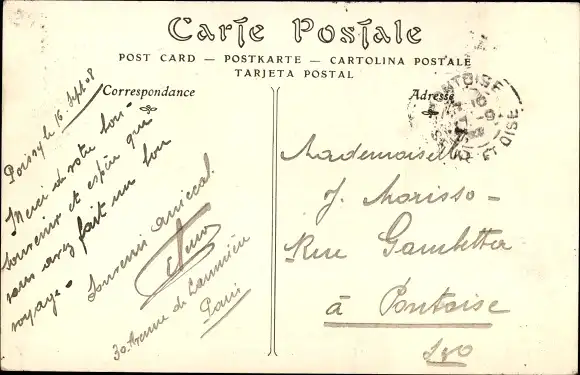 Carte Postale
POST CARD — POSTKARTE — CARTOLINA POSTALE
TARJETA POSTAL
Correspondance
Adresse
PONTOISE
ET OISE
Poissy le 16 Sept 08
Merci de votre bon
souvenir et espère que
vous avez fait un bon
voyage -
Souvenir amical
30 Avenue de
Paris
Mademoiselle
J. Morisso -
Rue Gambetta
à Pontoise
S&O